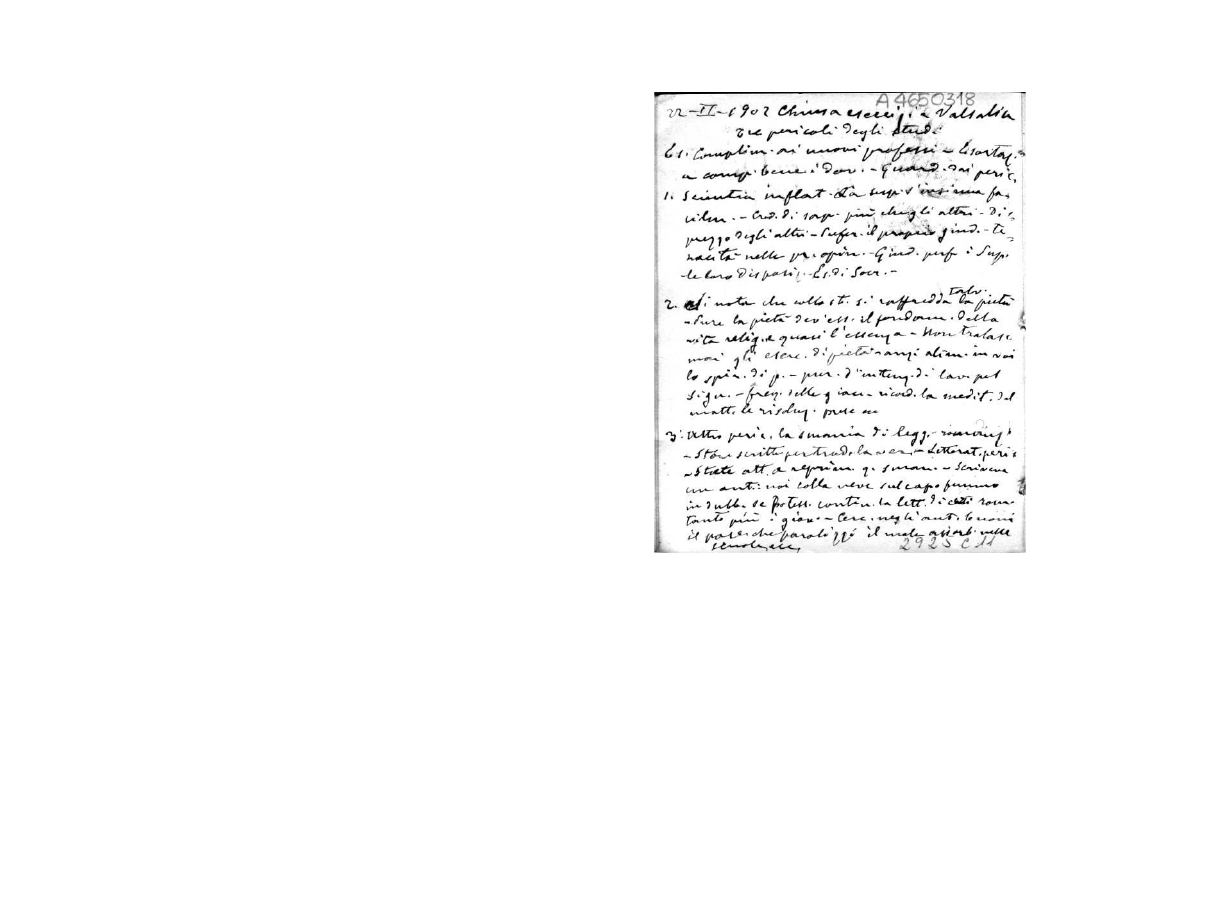 A 4650318
22-II-1902 Chiusa esercizi a Valsalice
Tre pericoli degli Stud.
Es. Complim. ai nuovi professi - Esortaz.
a comp. bene i dov. - Guard. dai peric.
1. Scientia inflat. La sup. s'insinua fa-
cilm. - Cred. di sap. più degli altri - Dis-
prezzo degli altri - Prefer. il proprio giud. - Te-
nacità nelle pr. opin. - Giud. perf. i Sup.
le loro disposiz. - Es. di Socr. -
2. Si nota che collo st. si raffredda talv. la pietà
- Pure la pietà dev'ess. il fondam. della
vita relig. e quasi l'essenza - Non tralasc.
mai gli eserc. di pietà anzi alim. in voi
lo spir. di p. - pur. d'intenz. di lav. pel
Sign. - freq. delle giac. - ricord. la medit. del
matt. le risoluz. prese
3. Altro peric. la smania di legg. romanzi
- Storie scritte per trad. la ver. - Letterat. peric.
- State att. a reprim. q. sman. - Scriveva
un ant.: noi colla neve sul capo fummo
in dubb. se potess. contin. la lett. di certi rom.
tanto più i giov. - Cerc. negli aut. buoni
il male assorb. nelle
scuole ecc.
2925 C 11